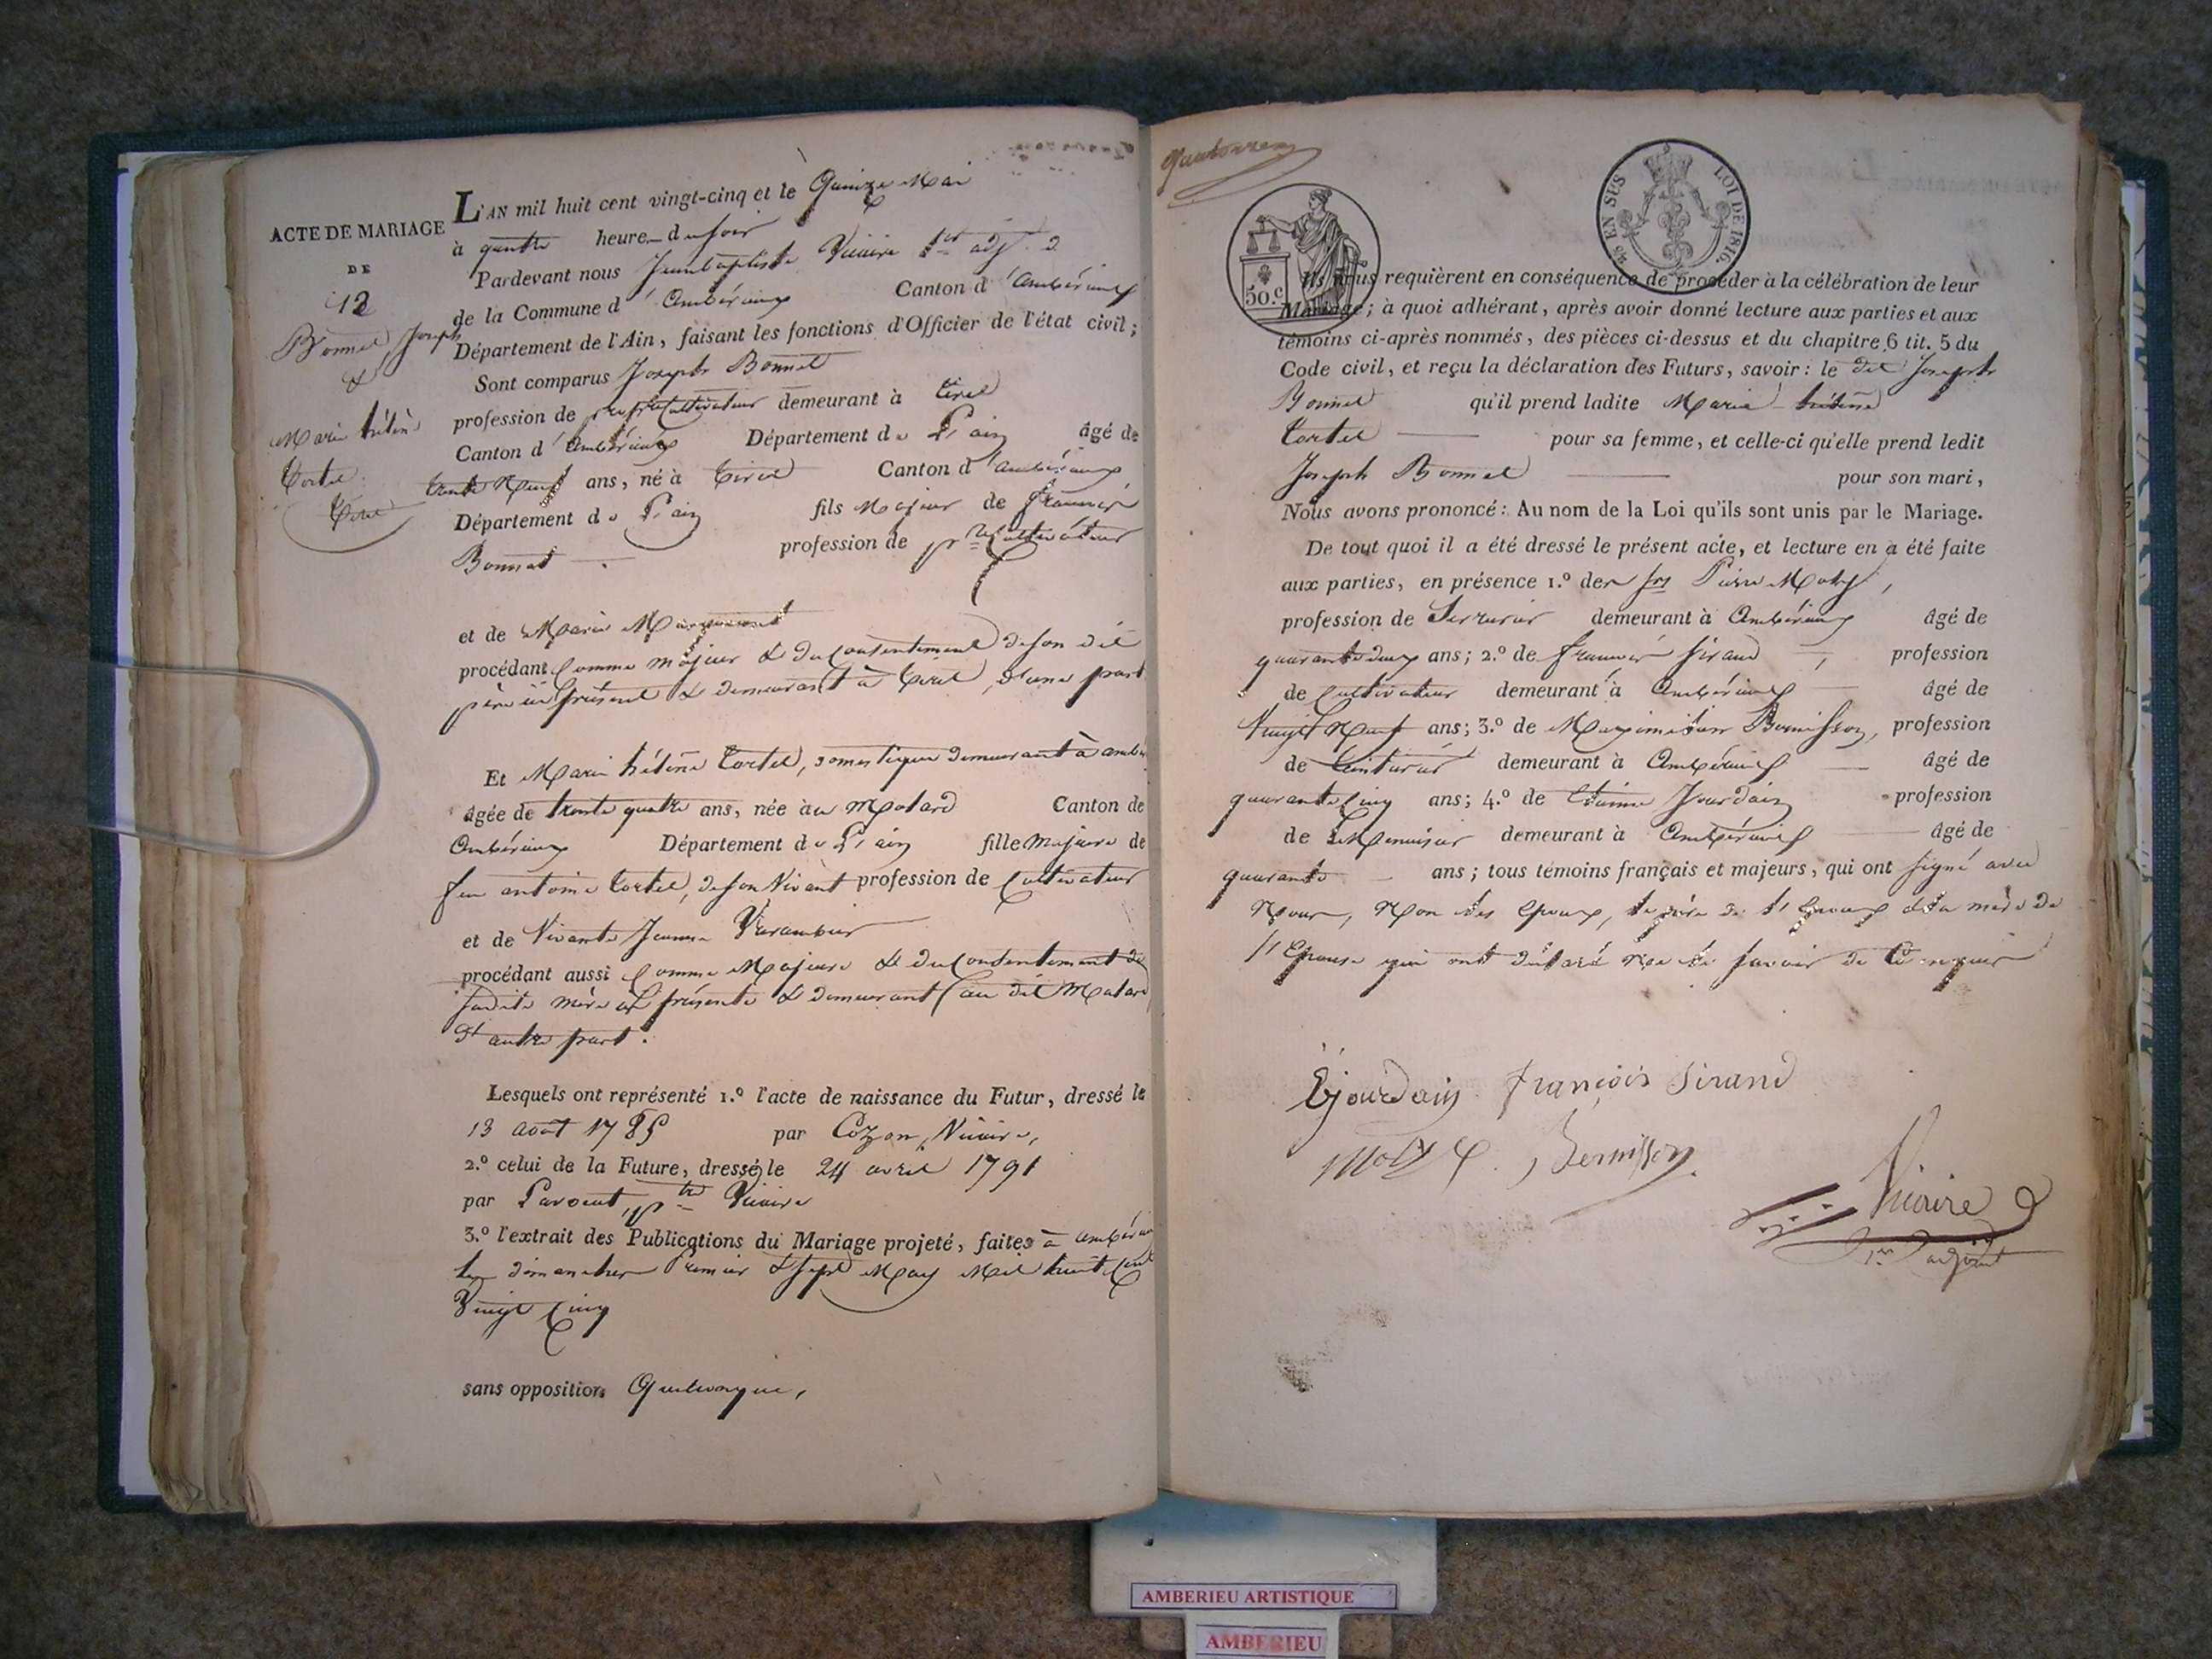 L'AN mil huit cent vingt-cinq et le Quinze Mai
ACTE DE MARIAGE
DE
12
Bonnet Joseph
&
Marie héléne
Tortel
Tiret
à quatre heures du soir
Pardevant nous Jeanbaptiste Vicaire 1er adjt.
de la Commune d'Ambérieux Canton d'Ambérieux
Département de l'Ain, faisant les fonctions d'Officier de l'état civil ;
Sont comparus Joseph Bonnet
profession de propre Cultivateur demeurant à Tiret
Canton d'Ambérieux Département de L'ain âgé de
trente Neuf ans, né à Tiret Canton d'ambérieux
Département de L'ain fils Majeur de François
Bonnet profession de pre Cultivateur
et de Marie
procédant Comme majeur & du Consentement de son dit
père ici présent & demeurant à Tiret, d'une part
Et Marie héléne Tortel, domestique demeurant à ambé
âgée de trente quatre ans, née au Motard Canton de
Ambérieux Département de L'ain fille Majeure de
feu antoine Tortel, de son Vivant profession de Cultivateur
et de Vivante Jeanne Varambier
procédant aussi Comme Majeure & du Consentement de
sadite mère ici présente & demeurant au dit Motard
d'autre part.
Lesquels ont représenté 1.º l'acte de naissance du Futur, dressé le
13 août 1785 par Cozon, Vicaire,
2.º celui de la Future, dressé le 24 avril 1791
par Parocut, ptre Vicaire
3.º l'extrait des Publications du Mariage projeté, faites à ambérieu
les dimanches Premier & Sept May Mil huit Cent
Vingt Cinq
sans opposition Quelconque,
50.c
EN SUS
LOI DE 1816.
Ils nous requièrent en conséquence de procéder à la célébration de leur
Mariage ; à quoi adhérant, après avoir donné lecture aux parties et aux
témoins ci-après nommés, des pièces ci-dessus et du chapitre 6 tit. 5 du
Code civil, et reçu la déclaration des Futurs, savoir : le dit Joseph
Bonnet qu'il prend ladite Marie héléne
Tortel pour sa femme, et celle-ci qu'elle prend ledit
Joseph Bonnet pour son mari,
Nous avons prononcé : Au nom de la Loi qu'ils sont unis par le Mariage.
De tout quoi il a été dressé le présent acte, et lecture en a été faite
aux parties, en présence 1.º des srs Pierre Moty,
profession de Serrurier demeurant à Ambérieux âgé de
quarante deux ans ; 2.º de François Sirand, profession
de Cultivateur demeurant à Ambérieux âgé de
Vingt Neuf ans ; 3.º de Maximilien Bernisson, profession
de teinturier demeurant à Ambérieux âgé de
quarante Cinq ans ; 4.º de Etienne Jourdain profession
de Menuisier demeurant à Ambérieux âgé de
quarante ans ; tous témoins français et majeurs, qui ont signé avec
Nous, Non les Epoux, le père de l'Epoux & la mère de
l'Epouse qui ont déclaré Ne le savoir de Ce requis
Ejourdain françois Sirand
Moty P. Bernisson
Vicaire
1er adjoint
AMBERIEU ARTISTIQUE
AMBERIEU